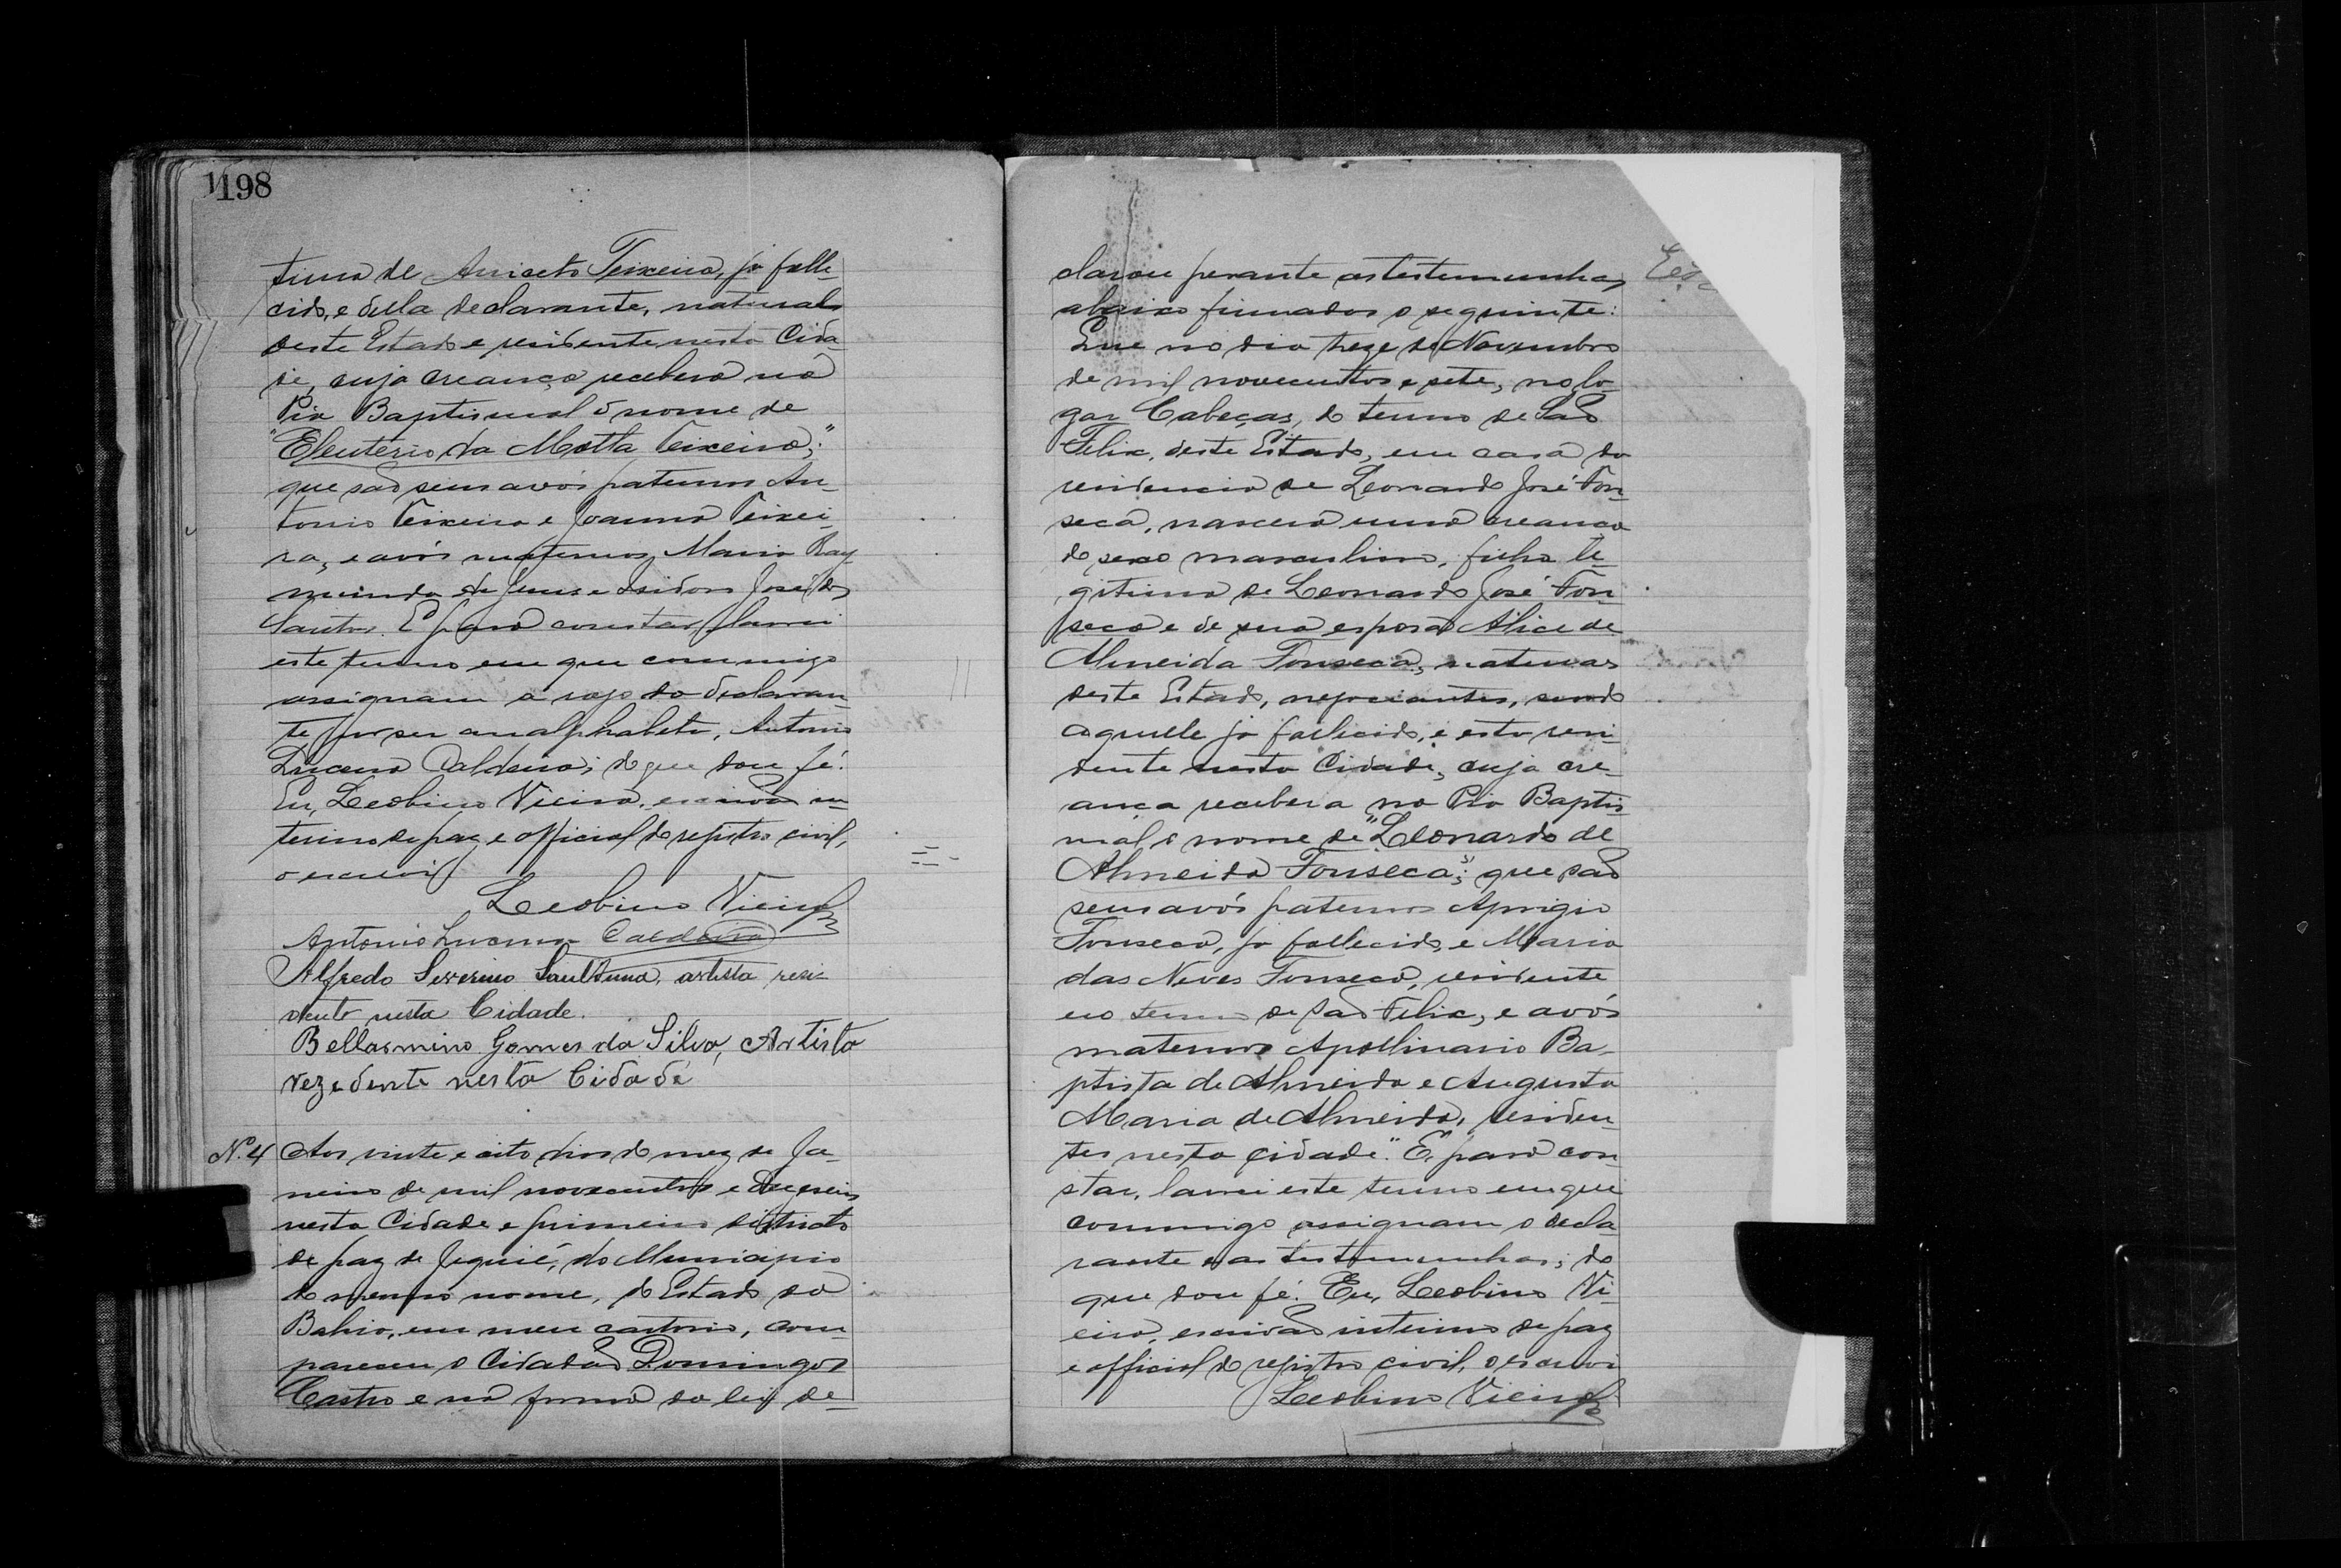 198
tima de Aniceto Teixeira, ja falle
cido, e della declarante, naturaes
deste Estado e residente nesta Cida
de, cuja creança recebera na
Pia Baptismal o nome de
"Eleuterio da Motta Teixeira;"
que são seus avós paternos An-
tonio Teixeira e Joanna Teixei-
ra, e avós maternos Maria Ray
munda de Jesus e Isidoro José dos
Santos. E para constar, lavrei
este termo em que commigo
assignam a rogo da declaran-
te por ser analphabeta, Antonio
Lucena Caldeira; do que dou fé.
Eu, Leobino Vieira, escrivão in-
terino de paz e official do registro civil,
o escrevi
Leobino Vieira
Antonio Lucena Caldeira
Alfredo Severino Sant'Anna, artista resi-
dente nesta Cidade.
Bellarmino Gomes da Silva, Artista
rezedente nesta Cidade
N. 4 Aos vinte e oito dias do mez de Ja-
neiro de mil novecentos e dezeseis
nesta Cidade e primeiro districto
de paz de Jequié, do Municipio
do mesmo nome, do Estado da
Bahia, em meu cartorio, com-
pareceu o Cidadão Domingos
Castro e na forma da lei de-
clarou perante as testemunhas
abaixo firmadas o seguinte:
Que no dia treze de Novembro
de mil novecentos e sete, no lo-
gar Cabeças, do termo de São
Felix, deste Estado, em casa da
residencia de Leonardo José Fon-
seca, nascera uma creança
do sexo masculino, filha le-
gitima de Leonardo José Fon-
seca e de sua esposa Alice de
Almeida Fonseca, naturaes
deste Estado, negociantes, sendo
aquelle ja fallecido, e esta resi-
dente nesta Cidade, cuja cre-
ança recebera na Pia Baptis
mal o nome de "Leonardo de
Almeida Fonseca"; que são
seus avós paternos Aprigio
Fonseca, ja fallecido, e Maria
das Neves Fonseca, residente
no termo de São Felix, e avós
maternos Apollinario Ba-
ptista de Almeida e Augusta
Maria de Almeida, residen-
tes nesta cidade." E para con-
star, lavrei este termo em que
commigo assignam o decla
rante e as testemunhas; do
que dou fé. Eu, Leobino Vi-
eira, escrivão interino de paz
e official do registro civil, o escrevi
Leobino Vieira